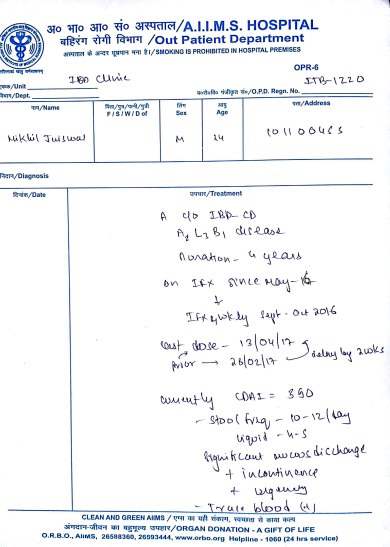 अ० भा० आ० सं० अस्पताल/A.I.I.M.S. HOSPITAL
बहिरंग रोगी विभाग /Out Patient Department
अस्पताल के अन्दर धूम्रपान मना है।/SMOKING IS PROHIBITED IN HOSPITAL PREMISES
OPR-6
एकक/Unit IBD Clinic
विभाग/Dept.
ब०रो०वि० पंजीकृत सं०/O.P.D. Regn. No. ITB-1220
नाम/Name
पिता/पुत्र/पत्नी/पुत्री
F / S / W / D of
लिंग
Sex
आयु
Age
पता/Address
Nikhil Jaiswal
M
24
101100453
निदान/Diagnosis
दिनांक/Date
उपचार/Treatment
A c/o IBD-CD
A2 L3 B1 disease
Duration - 4 years
On IFX since May-16
↓
IFX 4wkly Sept-Oct 2016
Last dose - 13/04/17
Prior → 26/02/17
delay by 2wks
Currently CDAI = 390
- Stool freq - 10-12/day
liquid - 4-5
Significant mucus discharge
+ incontinence
+ urgency
- Trace blood (+)
CLEAN AND GREEN AIIMS / एम्स का यही संकल्प, स्वच्छता से काया कल्प
अंगदान-जीवन का बहुमूल्य उपहार/ORGAN DONATION - A GIFT OF LIFE
O.R.B.O., AIIMS, 26588360, 26593444, www.orbo.org Helpline - 1060 (24 hrs service)